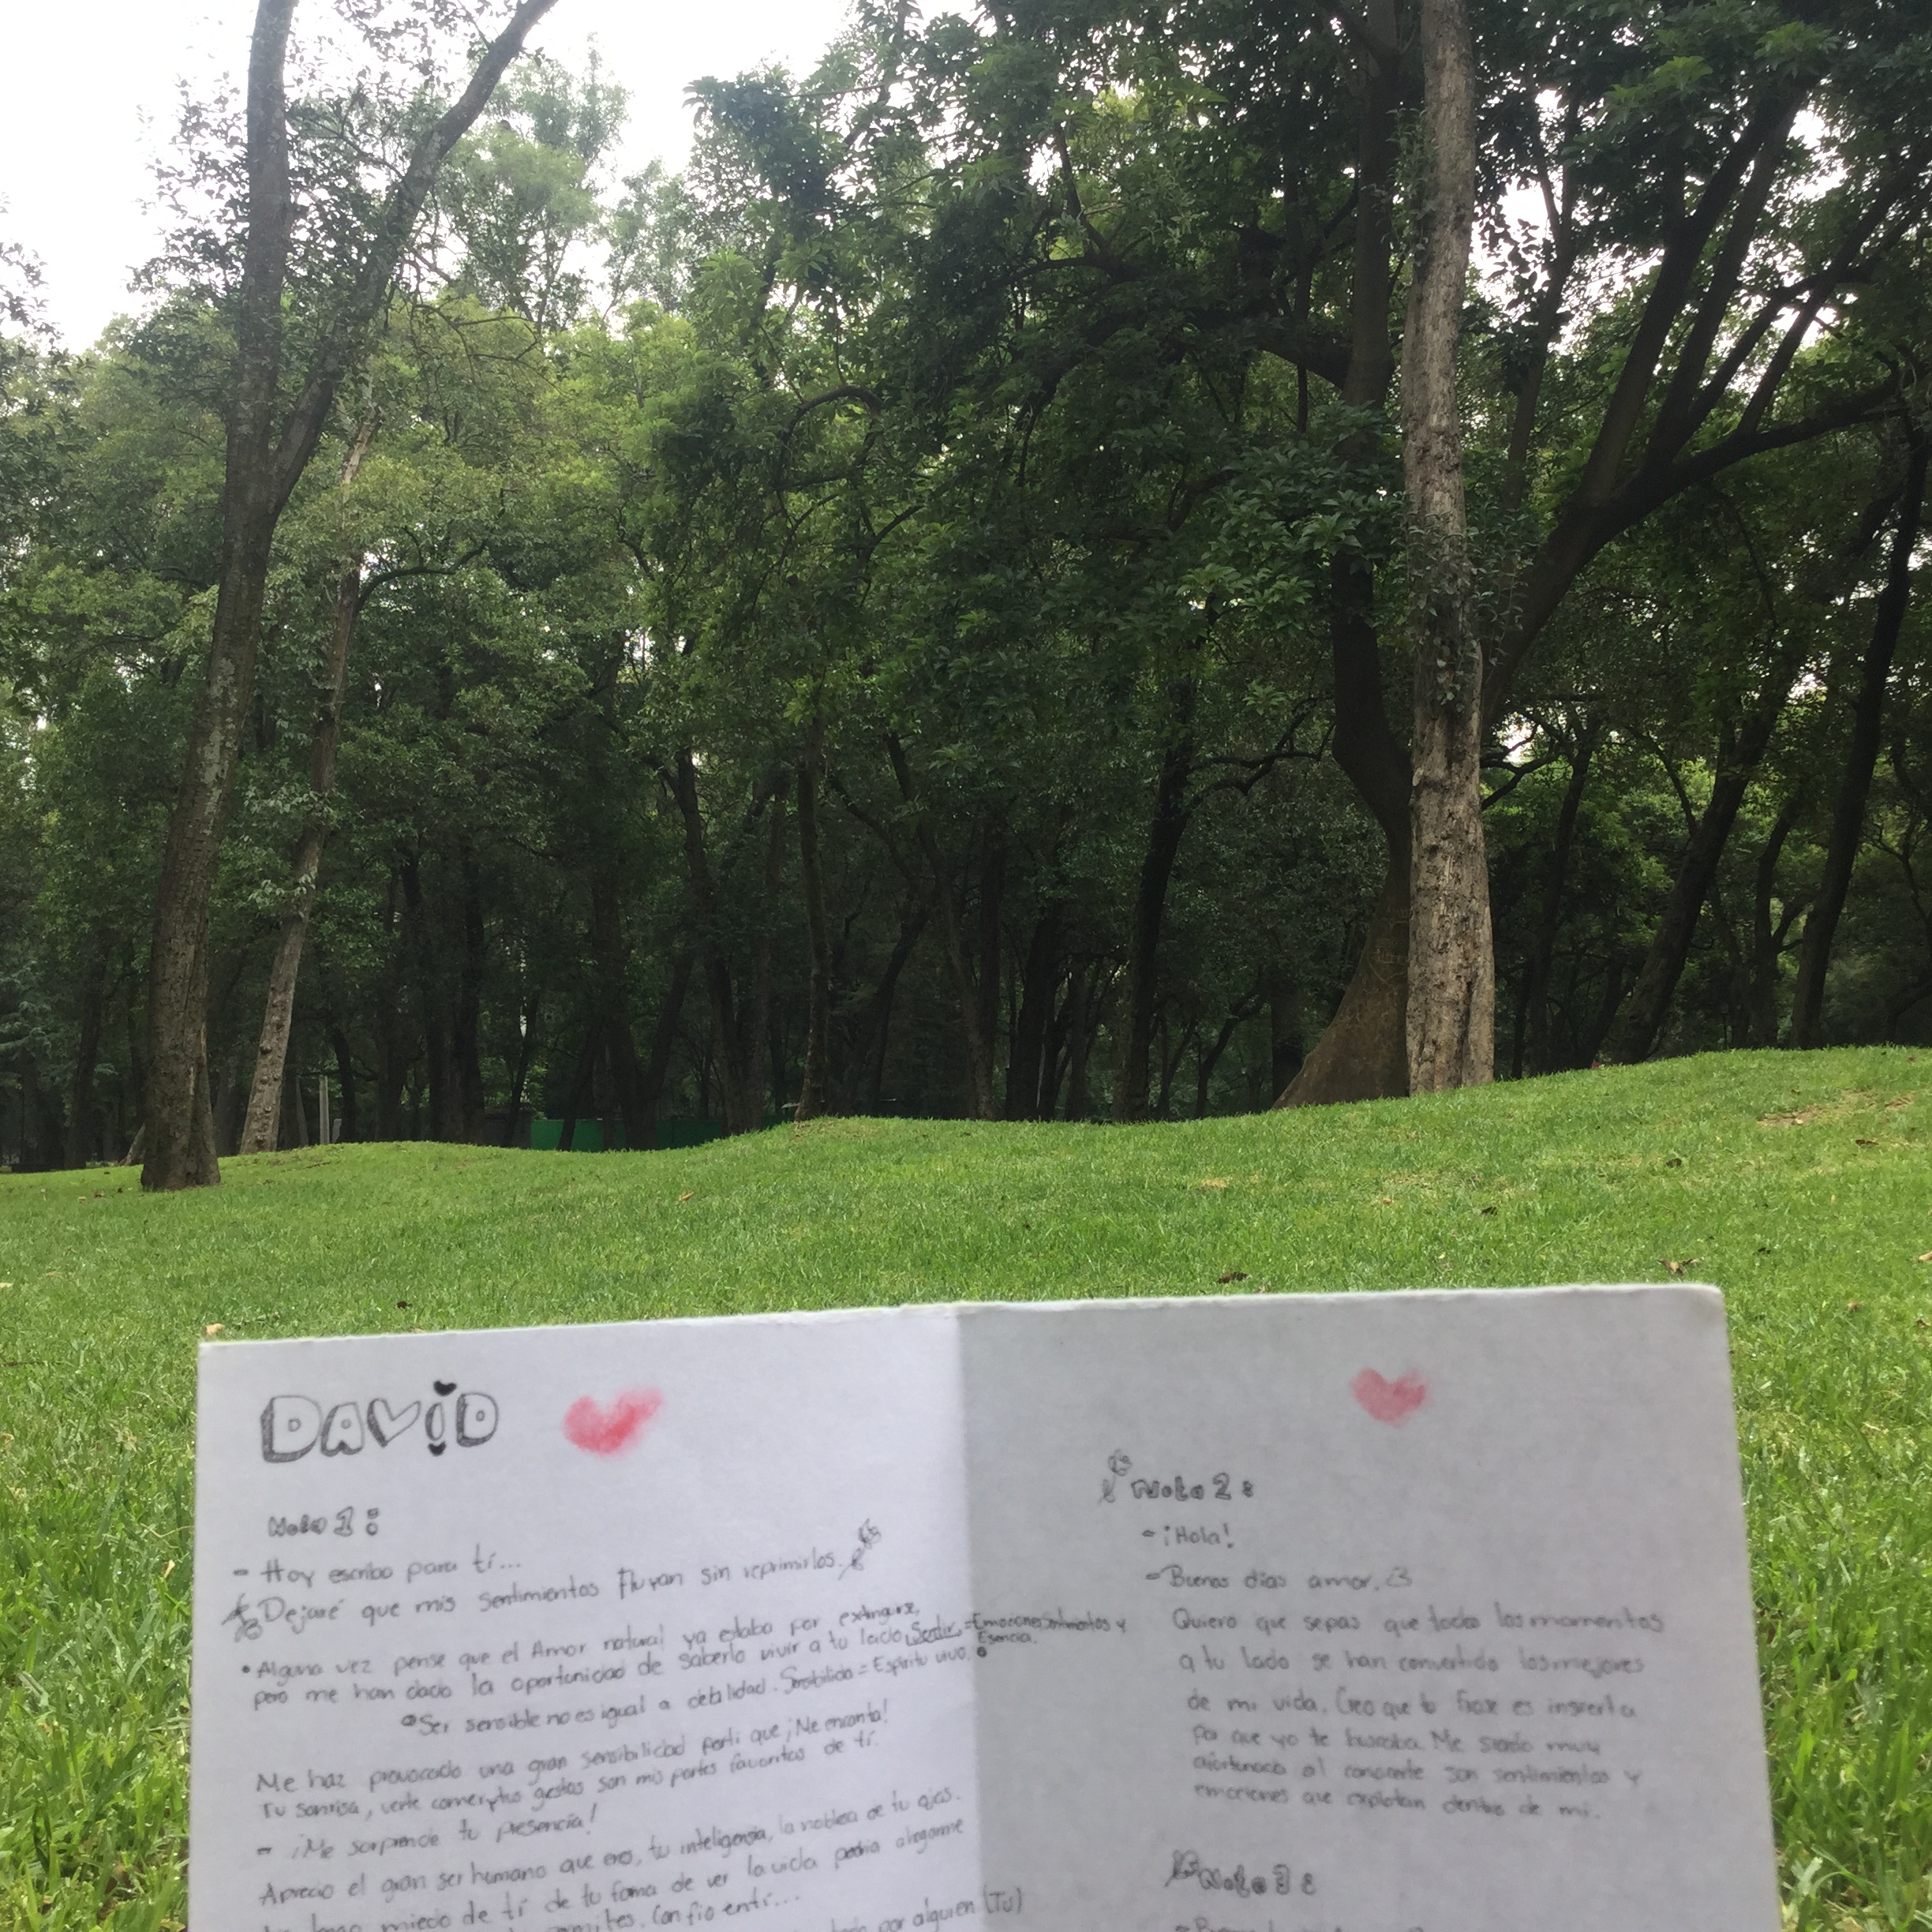 DAVID
Nota 1:
- Hoy escribo para tí...
Dejaré que mis sentimientos fluyan sin reprimirlos.
• Alguna vez pense que el Amor natural ya estaba por extinguirse,
pero me han dado la oportunidad de saberlo vivir a tu lado, Sentir = Emociones, Sentimientos y
Esencia.
Ser sensible no es igual a debilidad. Sensibilidad = Espíritu vivo.
Me haz provocado una gran sensibilidad por ti que ¡Me encanta!
Tu sonrisa, verte comer y tus gestos son mis partes favoritas de tí.
- ¡Me sorprende tu presencia!
Aprecio el gran ser humano que eres, tu inteligencia, la nobleza de tu ojos.
miedo de tí de tu forma de ver la vida podria alegarme
Confio en tí...
por alguien (Tú)
Nota 2:
- ¡Hola!
- Buenos días amor. <3
Quiero que sepas que todos los momentos
a tu lado se han convertido los mejores
de mi vida. Creo que la frase es incierta
por que yo te buscaba. Me siento muy
afortunado al conocerte son sentimientos y
emociones que explotan dentro de mi.
Nota 3: